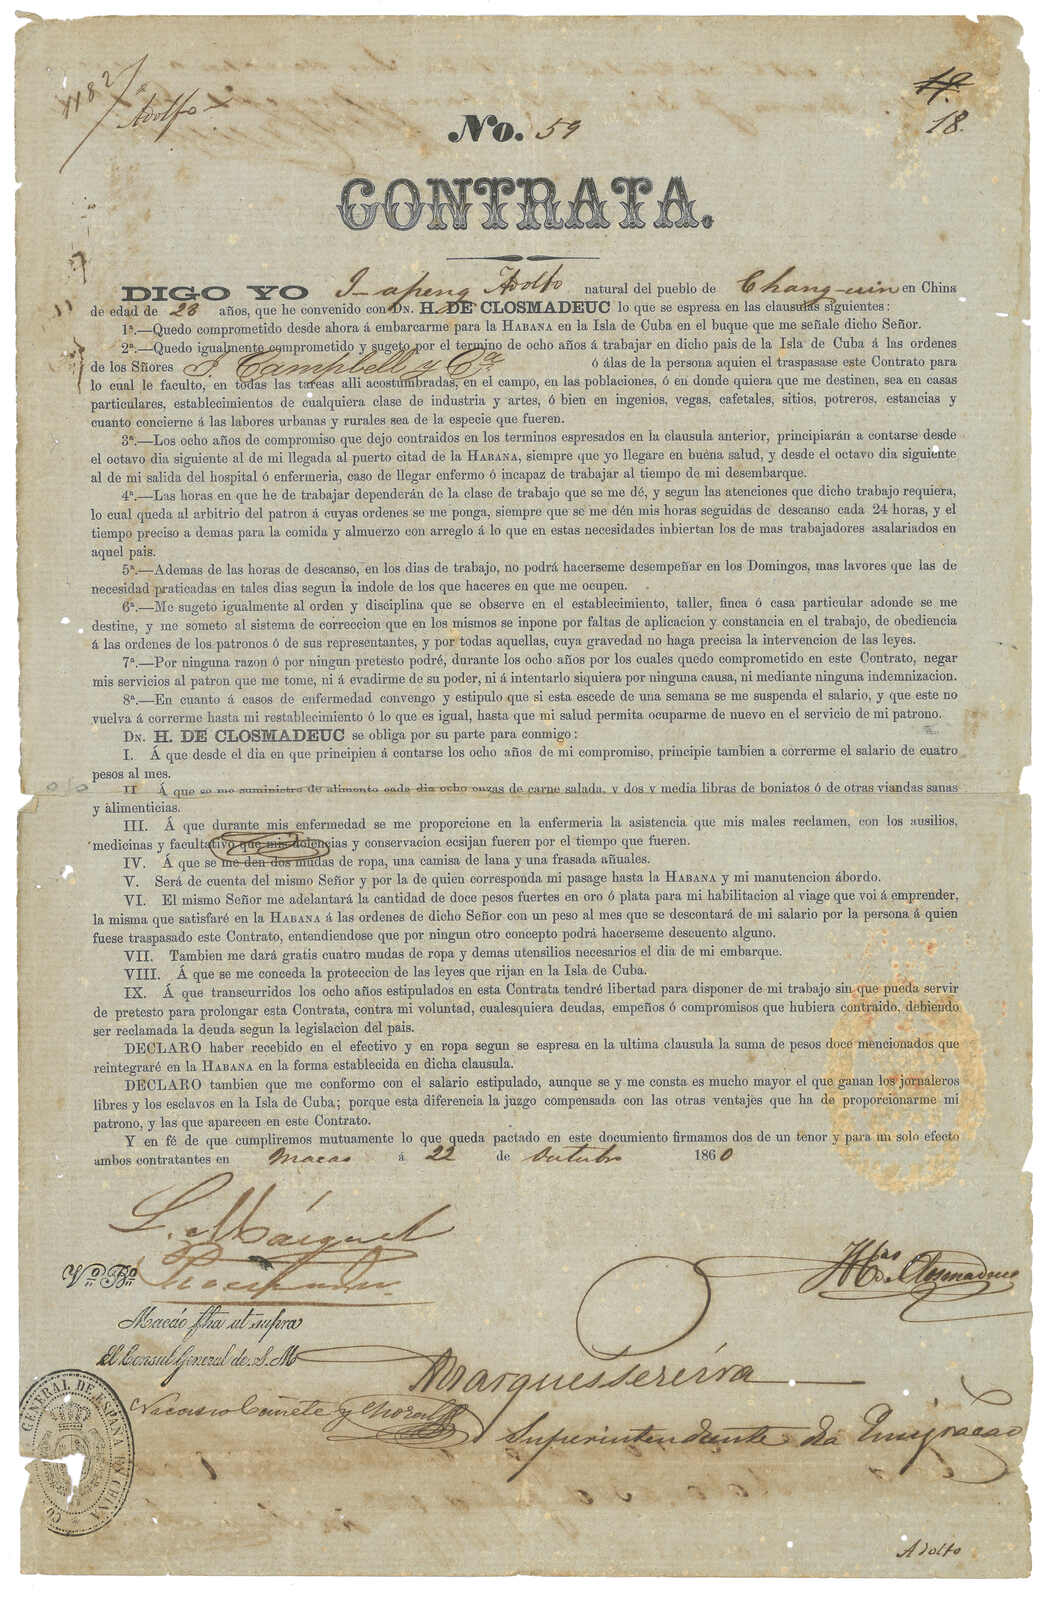 1182
Adolfo
19.
18.
No. 59
CONTRATA.
DIGO YO I-apeng Adolfo natural del pueblo de Chang-uin en China
de edad de 28 años, que he convenido con DN. H. DE CLOSMADEUC lo que se espresa en las clausulas siguientes:
1ª.—Quedo comprometido desde ahora á embarcarme para la HABANA en la Isla de Cuba en el buque que me señale dicho Señor.
2ª.—Quedo igualmente comprometido y sugeto por el termino de ocho años á trabajar en dicho pais de la Isla de Cuba á las ordenes
de los Sñores J. Campbell y Cª. ó álas de la persona aquien el traspasase este Contrato para
lo cual le faculto, en todas las tareas alli acostumbradas, en el campo, en las poblaciones, ó en donde quiera que me destinen, sea en casas
particulares, establecimientos de cualquiera clase de industria y artes, ó bien en ingenios, vegas, cafetales, sitios, potreros, estancias y
cuanto concierne á las labores urbanas y rurales sea de la especie que fueren.
3ª.—Los ocho años de compromiso que dejo contraidos en los terminos espresados en la clausula anterior, principiarán a contarse desde
el octavo dia siguiente al de mi llegada al puerto citad de la HABANA, siempre que yo llegare en buena salud, y desde el octavo dia siguiente
al de mi salida del hospital ó enfermeria, caso de llegar enfermo ó incapaz de trabajar al tiempo de mi desembarque.
4ª.—Las horas en que he de trabajar dependerán de la clase de trabajo que se me dé, y segun las atenciones que dicho trabajo requiera,
lo cual queda al arbitrio del patron á cuyas ordenes se me ponga, siempre que se me dén mis horas seguidas de descanso cada 24 horas, y el
tiempo preciso a demas para la comida y almuerzo con arreglo á lo que en estas necesidades inbiertan los de mas trabajadores asalariados en
aquel pais.
5ª.—Ademas de las horas de descanso, en los dias de trabajo, no podrá hacerseme desempeñar en los Domingos, mas lavores que las de
necesidad praticadas en tales dias segun la indole de los que haceres en que me ocupen.
6ª.—Me sugeto igualmente al orden y disciplina que se observe en el establecimiento, taller, finca ó casa particular adonde se me
destine, y me someto al sistema de correccion que en los mismos se inpone por faltas de aplicacion y constancia en el trabajo, de obediencia
á las ordenes de los patronos ó de sus representantes, y por todas aquellas, cuya gravedad no haga precisa la intervencion de las leyes.
7ª.—Por ninguna razon ó por ningun pretesto podré, durante los ocho años por los cuales quedo comprometido en este Contrato, negar
mis servicios al patron que me tome, ni á evadirme de su poder, ni á intentarlo siquiera por ninguna causa, ni mediante ninguna indemnizacion.
8ª.—En cuanto á casos de enfermedad convengo y estipulo que si esta escede de una semana se me suspenda el salario, y que este no
vuelva á correrme hasta mi restablecimiento ó lo que es igual, hasta que mi salud permita ocuparme de nuevo en el servicio de mi patrono.
DN. H. DE CLOSMADEUC se obliga por su parte para conmigo:
I. Á que desde el dia en que principien á contarse los ocho años de mi compromiso, principie tambien a correrme el salario de cuatro
pesos al mes.
II Á que se me suministre de alimento cada dia ocho onzas de carne salada, y dos y media libras de boniatos ó de otras viandas sanas
y alimenticias.
III. Á que durante mis enfermedad se me proporcione en la enfermeria la asistencia que mis males reclamen, con los ausilios,
medicinas y facultativo que mis dolencias y conservacion ecsijan fueren por el tiempo que fueren.
IV. Á que se me den dos mudas de ropa, una camisa de lana y una frasada añuales.
V. Será de cuenta del mismo Señor y por la de quien corresponda mi pasage hasta la HABANA y mi manutencion ábordo.
VI. El mismo Señor me adelantará la cantidad de doce pesos fuertes en oro ó plata para mi habilitacion al viage que voi á emprender,
la misma que satisfaré en la HABANA á las ordenes de dicho Señor con un peso al mes que se descontará de mi salario por la persona á quien
fuese traspasado este Contrato, entendiendose que por ningun otro concepto podrá hacerseme descuento alguno.
VII. Tambien me dará gratis cuatro mudas de ropa y demas utensilios necesarios el dia de mi embarque.
VIII. Á que se me conceda la proteccion de las leyes que rijan en la Isla de Cuba.
IX. Á que transcurridos los ocho años estipulados en esta Contrata tendré libertad para disponer de mi trabajo sin que pueda servir
de pretesto para prolongar esta Contrata, contra mi voluntad, cualesquiera deudas, empeños ó compromisos que hubiera contraido, debiendo
ser reclamada la deuda segun la legislacion del pais.
DECLARO haber recebido en el efectivo y en ropa segun se espresa en la ultima clausula la suma de pesos doce mencionados que
reintegraré en la HABANA en la forma establecida en dicha clausula.
DECLARO tambien que me conformo con el salario estipulado, aunque se y me consta es mucho mayor el que ganan los jornaleros
libres y los esclavos en la Isla de Cuba; porque esta diferencia la juzgo compensada con las otras ventajes que ha de proporcionarme mi
patrono, y las que aparecen en este Contrato.
Y en fé de que cumpliremos mutuamente lo que queda pactado en este documento firmamos dos de un tenor y para un solo efecto
ambos contratantes en Macao á 22 de Outubro 1860
Vº. Bº.
Macáo fha ut supra
El Consul General de S. M.
Marques Pereira
Superintendente da Emigracao
GENERAL DE ESPAÑA EN CHINA
Adolfo